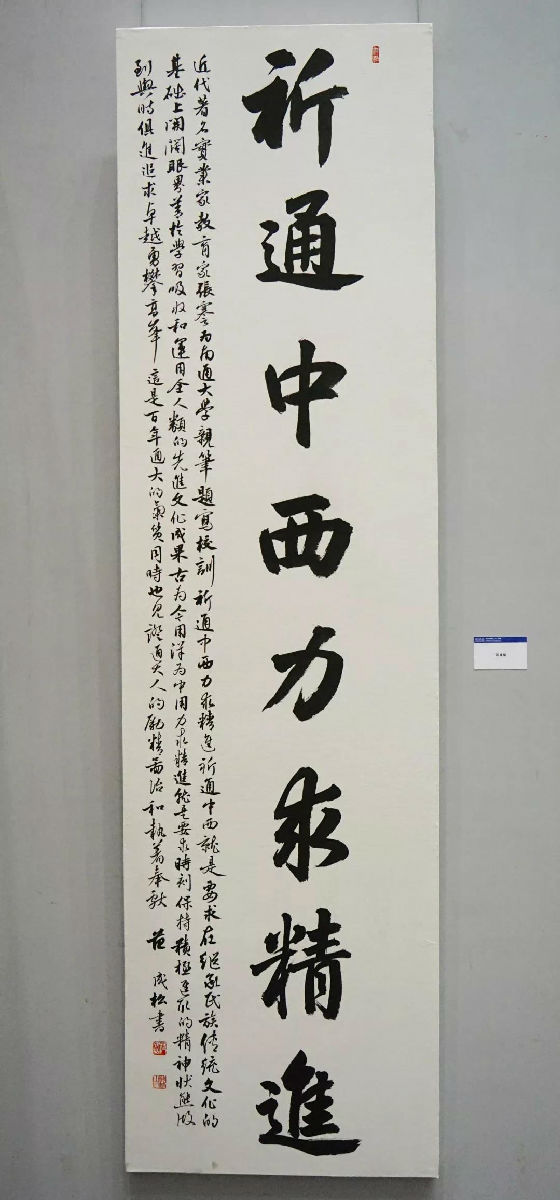 祈通中西力求精進
近代著名實業家教育家張謇為南通大學親筆題寫校訓祈通中西力求精進祈通中西就是要求在繼承民族傳統文化的
基礎上開闊眼界善於學習吸收和運用全人類的先進文化成果古為今用洋為中用力求精進就是要求時刻保持積極進取的精神狀態做
到與時俱進追求卓越勇攀高峰這是百年通大的氣質同時也見證通大人的勵精圖治和執着奉獻 范成松書